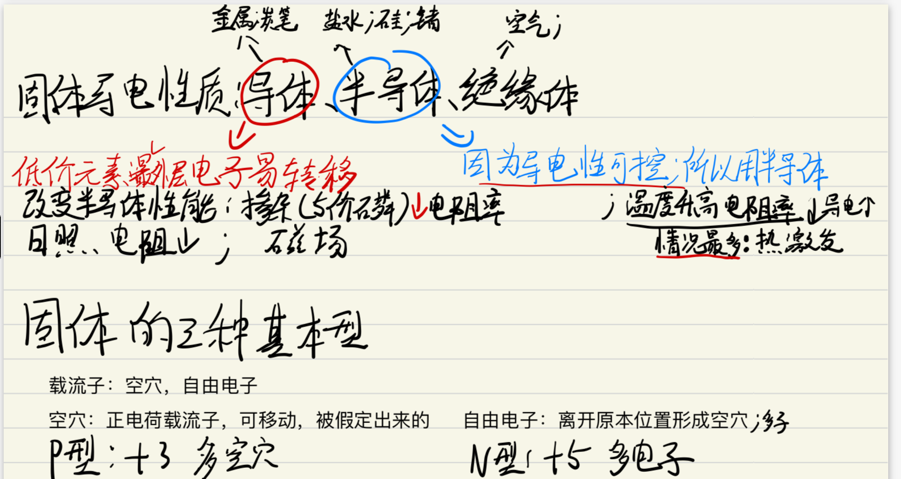 金属;炭笔 盐水;硅;锗 空气;
固体导电性质:导体、半导体、绝缘体
低价元素最外层电子易转移 因为导电性可控;所以用半导体
改变半导体性能:掺杂(5价石磷)↓电阻率 ;温度升高电阻率↓导电↑
日照、电阻↓; 磁场 情况最多:热激发
固体的三种基本型
载流子：空穴，自由电子
空穴：正电荷载流子，可移动，被假定出来的 自由电子：离开原本位置形成空穴;多子
P型:+3 多空穴 N型:+5 多电子